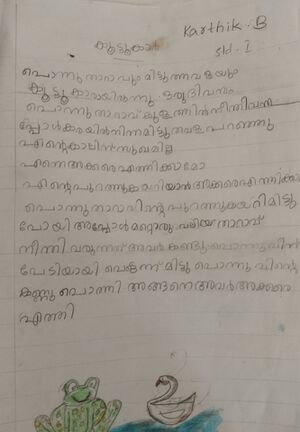 Karthik. B
കൂട്ടുകാർ
Std - I
പൊന്നു താറാവും മിട്ടു തവളയും
കൂട്ടുകാരായിരുന്നു. ഒരു ദിവസം
പൊന്നു താറാവ് കുളത്തിൽ നീന്തി വന്ന
പ്പോൾ കരയിൽ നിന്ന മിട്ടു തവള പറഞ്ഞു
എന്റെ കാലിന് സുഖമില്ല
എന്നെ അക്കരെ എത്തിക്കാമോ
എന്റെ പുറത്തു കയറിയാൻ അക്കരെ എത്തിക്കാം
പൊന്നു താറാവിന്റെ പുറത്തു കയറി മിട്ടു
പോയി അപ്പോൾ മറ്റൊരു വലിയ താറാവ്
നീന്തി വരുന്നത് അവർ കണ്ടു പൊന്നുവിന്
പേടിയായി പെട്ടന്ന് മിട്ടു പൊന്നുവിന്റെ
കണ്ണു പൊത്തി അങ്ങനെ അവർ അക്കരെ
എത്തി